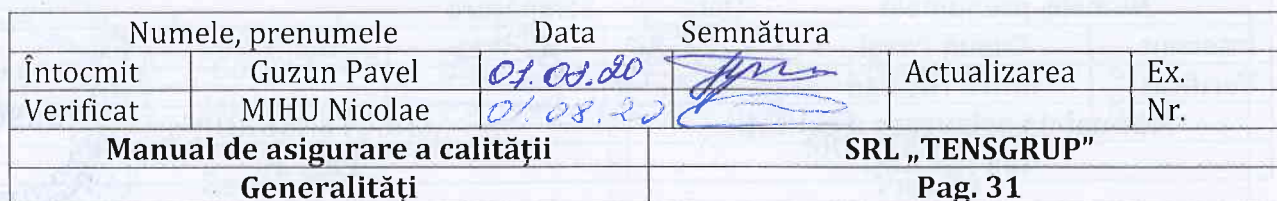 Numele, prenumele Data Semnătura
Întocmit Guzun Pavel 01.08.20 Actualizarea Ex.
Verificat MIHU Nicolae 01.08.20 Nr.
Manual de asigurare a calității SRL „TENSGRUP”
Generalități Pag. 31